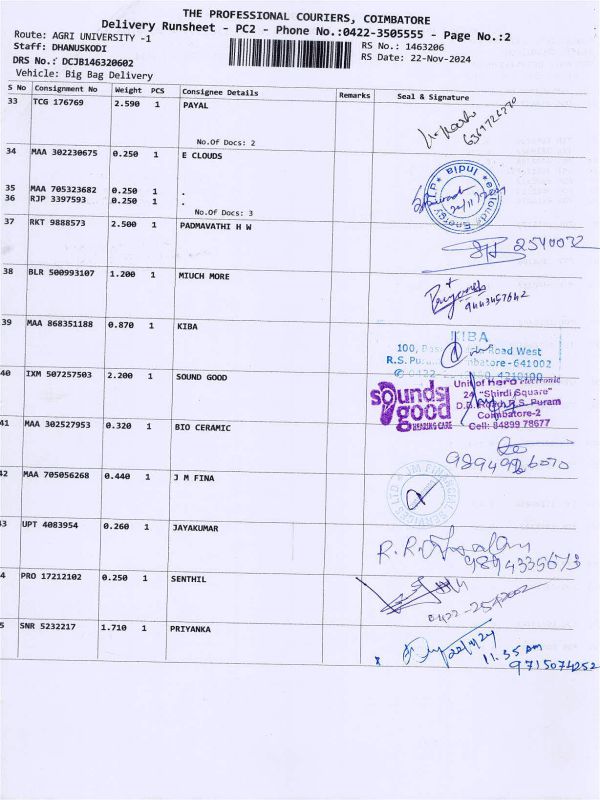 THE PROFESSIONAL COURIERS, COIMBATORE
Delivery Runsheet - PC2 - Phone No.:0422-3505555 - Page No.:2
Route: AGRI UNIVERSITY -1
Staff: DHANUSKODI
RS No.: 1463206
DRS No.: DCJB146320602
RS Date: 22-Nov-2024
Vehicle: Big Bag Delivery
S No Consignment No Weight PCS Consignee Details Remarks Seal & Signature
33 TCG 176769 2.590 1 PAYAL
No.Of Docs: 2
34 MAA 302230675 0.250 1 E CLOUDS
35 MAA 705323682 0.250 1 .
36 RJP 3397593 0.250 1 .
No.Of Docs: 3
37 RKT 9888573 2.500 1 PADMAVATHI H W
2540072
38 BLR 500993107 1.200 1 MIUCH MORE
9443457642
39 MAA 868351188 0.870 1 KIBA
KIBA
100, Road West
R.S. -641002
40 IXM 507257503 2.200 1 SOUND GOOD
sounds good
HEARING CARE
Unit of hero electronic
24, "Shirdi Square"
D.B. Road, R.S. Puram
Coimbatore-2
Cell: 84899 78677
41 MAA 302527953 0.320 1 BIO CERAMIC
42 MAA 705056268 0.440 1 J M FINA
JM FINANCIAL SERVICES LTD
43 UPT 4083954 0.260 1 JAYAKUMAR
9894335673
4 PRO 17212102 0.250 1 SENTHIL
5 SNR 5232217 1.710 1 PRIYANKA
22/11/24
11.35 Am
9715074252